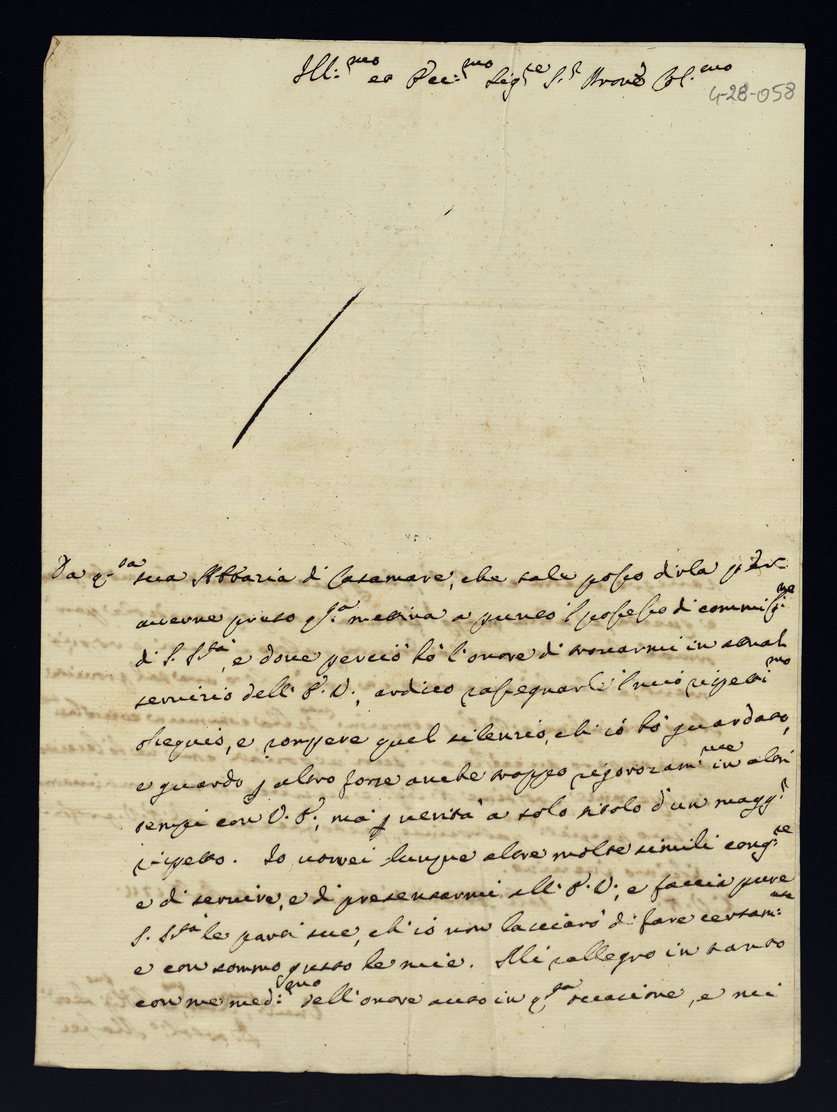 Ill:mo et Ecc:mo Sig.re S.r Prone Col.mo
4-28-058
Da q.sta sua Abbazia di Casamare, che tale posso dirla per
averne preso q.sta mattina a punto il possesso di commiss.ne
di S. S.tà, e dove perciò hò l'onore di trovarmi in attual
servizio dell'E. V., ardisco rassegnarle il mio rispett.mo
ossequio, e rompere quel silenzio, ch'io hò guardato,
e guardo p altro forse anche troppo rigorozam.te in altri
tempi con V. E., ma p verità a solo titolo d'un magg.r
rispetto. Io vorrei lunque altre molte simili cong.re
e di servire, e di presentarmi all'E. V., e faccia pure
S. S.tà le parti sue, ch'io non lascierò di fare certam:nte
e con sommo gusto le mie. Mi rallegro in tanto
con me med:mo dell'onore avuto in q.sta occasione, e mi